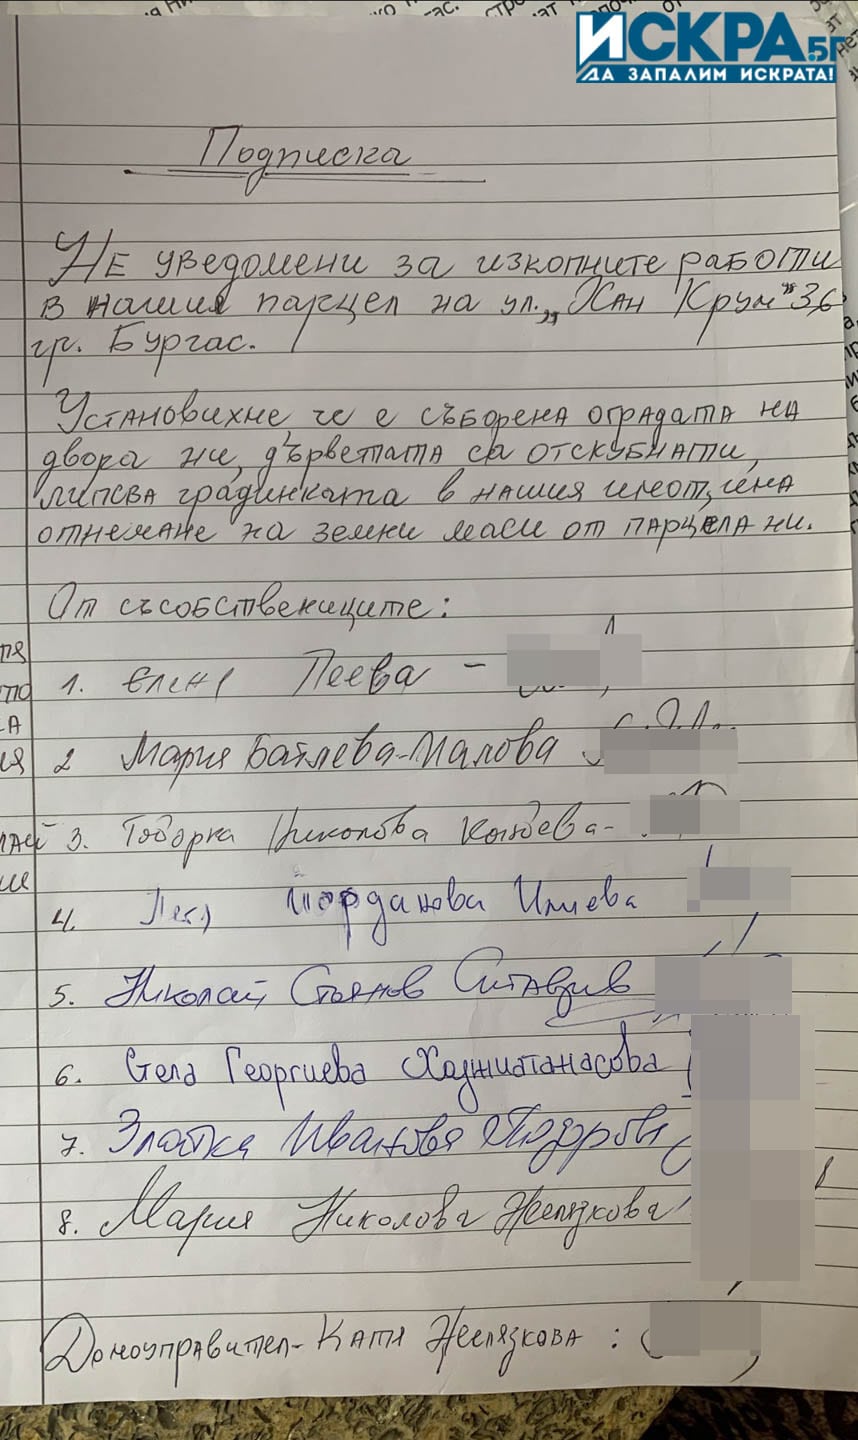 ИСКРА.БГ
ДА ЗАПАЛИМ ИСКРАТА!
Подписка
Не уведомени за изкопните работи
в нашия парцел на ул. „Хан Крум" 36
гр. Бургас.
Установихме че е съборена оградата на
двора ни, дърветата са отскубнати,
липсва градинката в нашия имот, има
отнемане на земни маси от парцела ни.
От съсобствениците:
1. Елена Пеева -
2 Мария Батлева-Малова
3. Тодорка Николова
4. Йорданова Илиева
5. Николай Стоянов
6. Стела Георгиева Хаджиатанасова
7. Златка Иванова Тодорова
8. Мария Николова Желязкова
Домоуправител - Катя Желязкова :